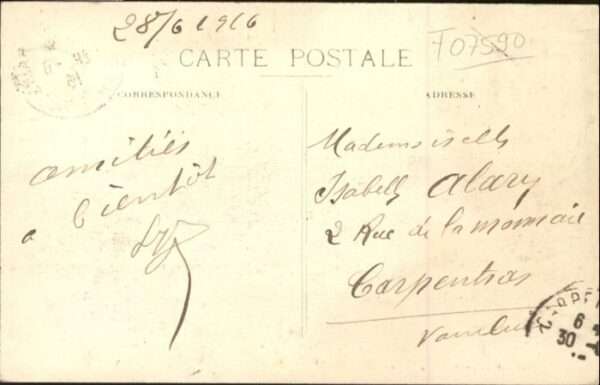 28/6 1916
T07590
CARTE POSTALE
CORRESPONDANCE
ADRESSE
amitiés
a bientôt
Mademoiselle
Isabelle Alary
2 Rue de la monnaie
Carpentras
Vaucluse
6
30